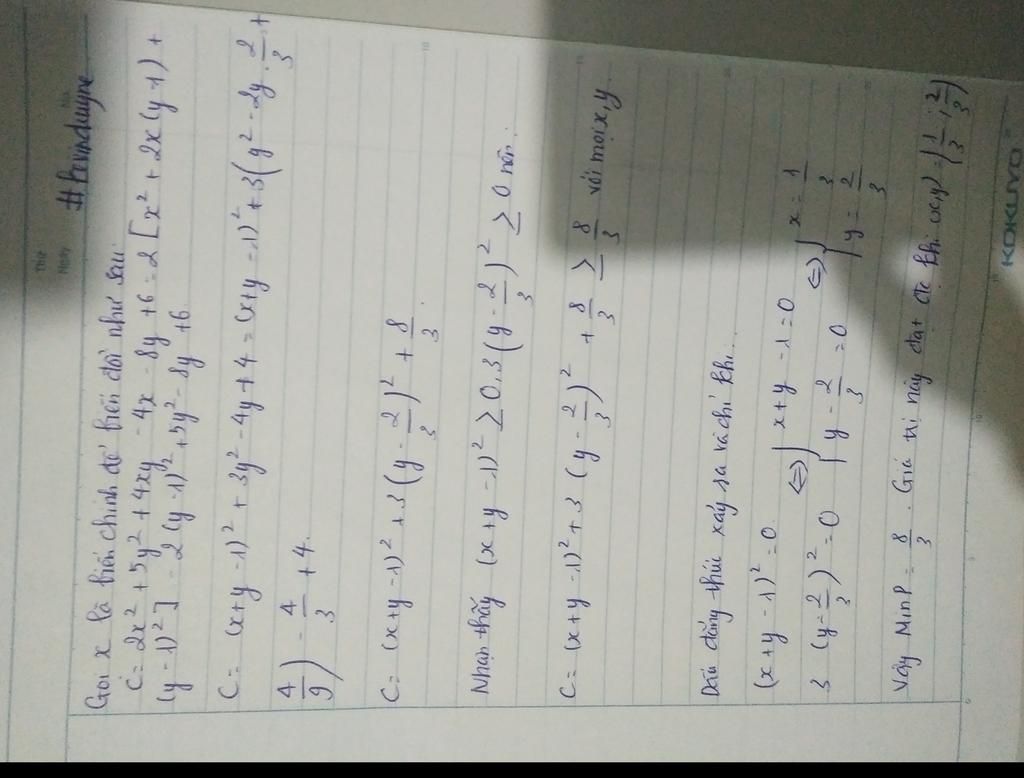 Thứ
Ngày
No.
Gọi x là biến chính để biến đổi như sau:
C = 2x² + 5y² + 4xy - 4x - 8y + 6 = 2 [x² + 2x(y-1) +
(y-1)²] - 2(y-1)² + 5y² - 8y + 6.
C = (x+y-1)² + 3y² - 4y + 4 = (x+y-1)² + 3(y² - 2y.2/3 +
4/9) - 4/3 + 4.
C = (x+y-1)² + 3(y - 2/3)² + 8/3.
Nhận thấy (x+y-1)² ≥ 0, 3(y - 2/3)² ≥ 0 nên.
C = (x+y-1)² + 3(y - 2/3)² + 8/3 ≥ 8/3 với mọi x, y
Dấu đẳng thức xảy ra và chỉ khi..
(x+y-1)² = 0. ⇔ { x+y-1 = 0 ⇔ { x = 1/3
3(y - 2/3)² = 0 { y - 2/3 = 0 { y = 2/3
Vậy MinP = 8/3. Giá trị này đạt đc khi (x,y) = (1/3; 2/3)
KOKUYO